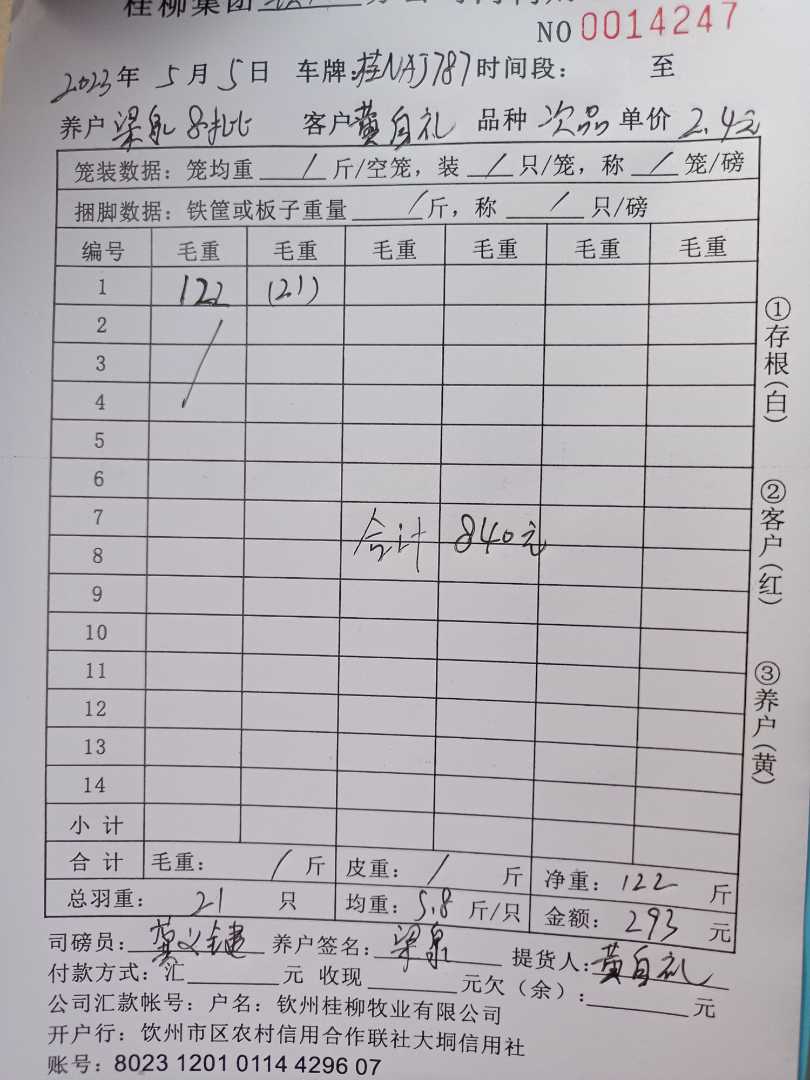 桂柳集团
NO 0014247
2023年 5月5日 车牌:桂NAJ787 时间段: 至
养户 梁泉 8批 客户 黄自礼 品种 次品 单价 2.4元
笼装数据: 笼均重 / 斤/空笼, 装 / 只/笼, 称 / 笼/磅
捆脚数据: 铁筐或板子重量 / 斤, 称 / 只/磅
编号 毛重 毛重 毛重 毛重 毛重 毛重
1 122 (21)
2
3
4
5
6
7
合计 840元
8
9
10
11
12
13
14
小 计
合 计 毛重: / 斤 皮重: / 斤 净重: 122 斤
总羽重: 21 只 均重: 5.8 斤/只 金额: 293 元
司磅员: 养户签名: 梁泉 提货人: 黄自礼
付款方式: 汇 元 收现 元欠(余): 元
公司汇款帐号: 户名: 钦州桂柳牧业有限公司
开户行: 钦州市区农村信用合作联社大垌信用社
账号: 8023 1201 0114 4296 07
①存根(白)
②客户(红)
③养户(黄)